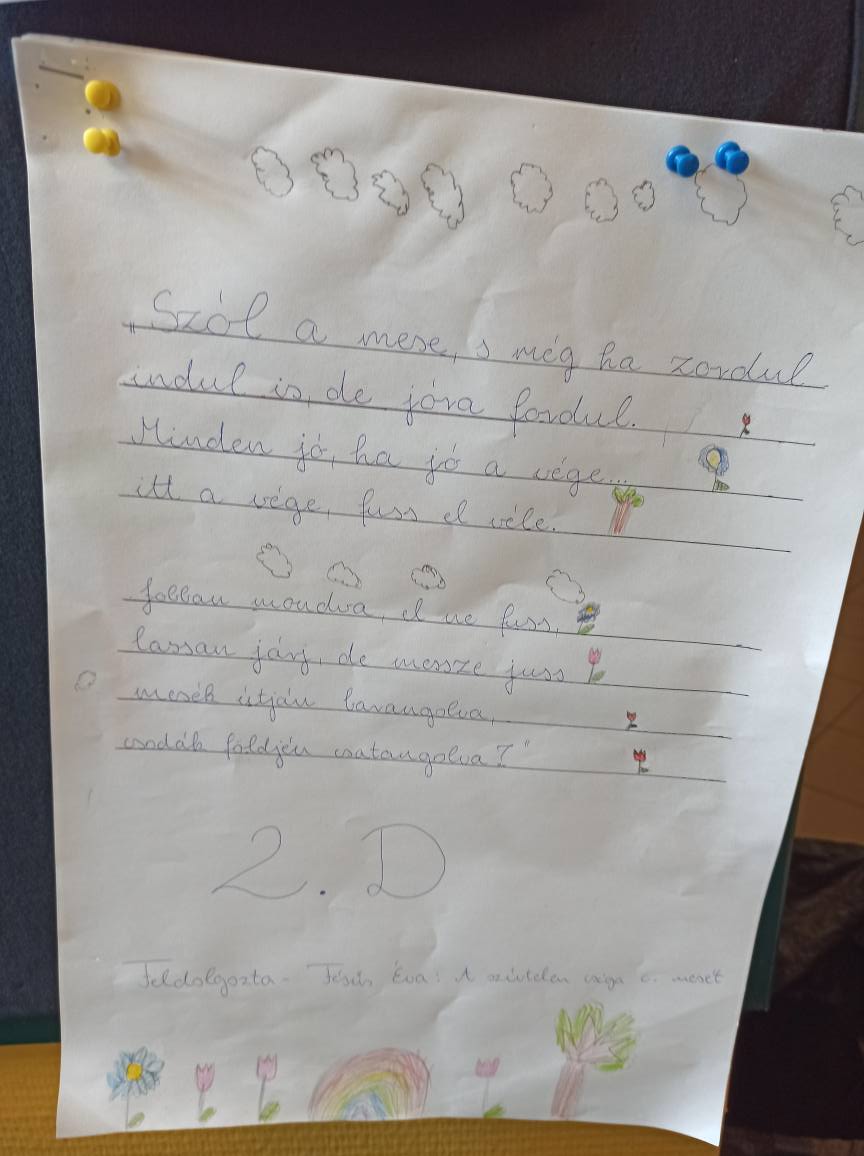 „Szól a mese, s még ha zordul
indul is, de jóra fordul.
Minden jó, ha jó a vége...
itt a vége, fuss el véle.
Jobban mondva, el ne fuss,
lassan járj, de messze juss
mesék útján barangolva,
csodák földjén csatangolva?"
2. D
Feldolgozta - Fésűs Éva: A színtelen csiga c. mesét